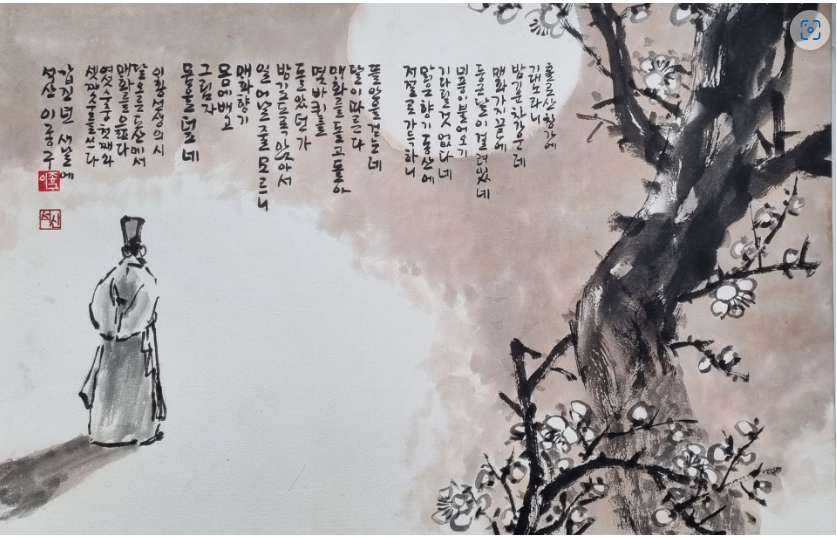 홀로산창가에
기대노라니
밤기운차가운데
매화가지끝에
둥근달이걸려있네
미풍이불어오기
기다릴것 없다네
맑은향기 동산에
저절로가득하니
뜰안을걷는데
달이따른다
매화를돌고돌아
몇바퀴를
돌았던가
밤기도록 앉아서
일어날줄 모르니
매화향기
몸에배고
그림자
몸을덮네
이황선생의시
달오른도산에서
매화를읊다
여섯수중첫째와
셋째수를쓰다
갑진년 새날에
석산 이종구
석산